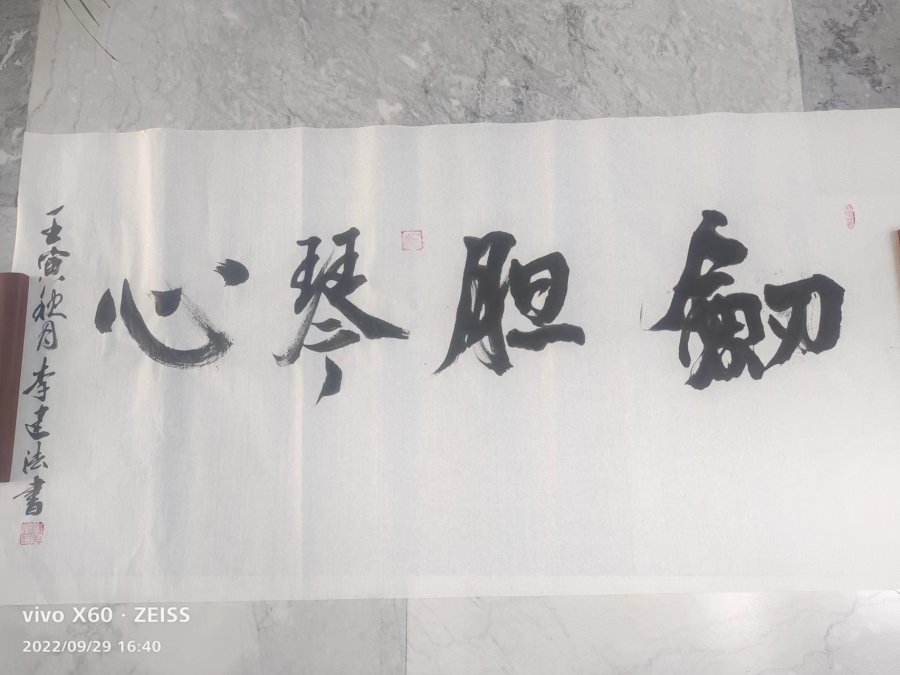 劒胆琴心
壬寅秋月李建法书
vivo X60 · ZEISS
2022/09/29 16:40